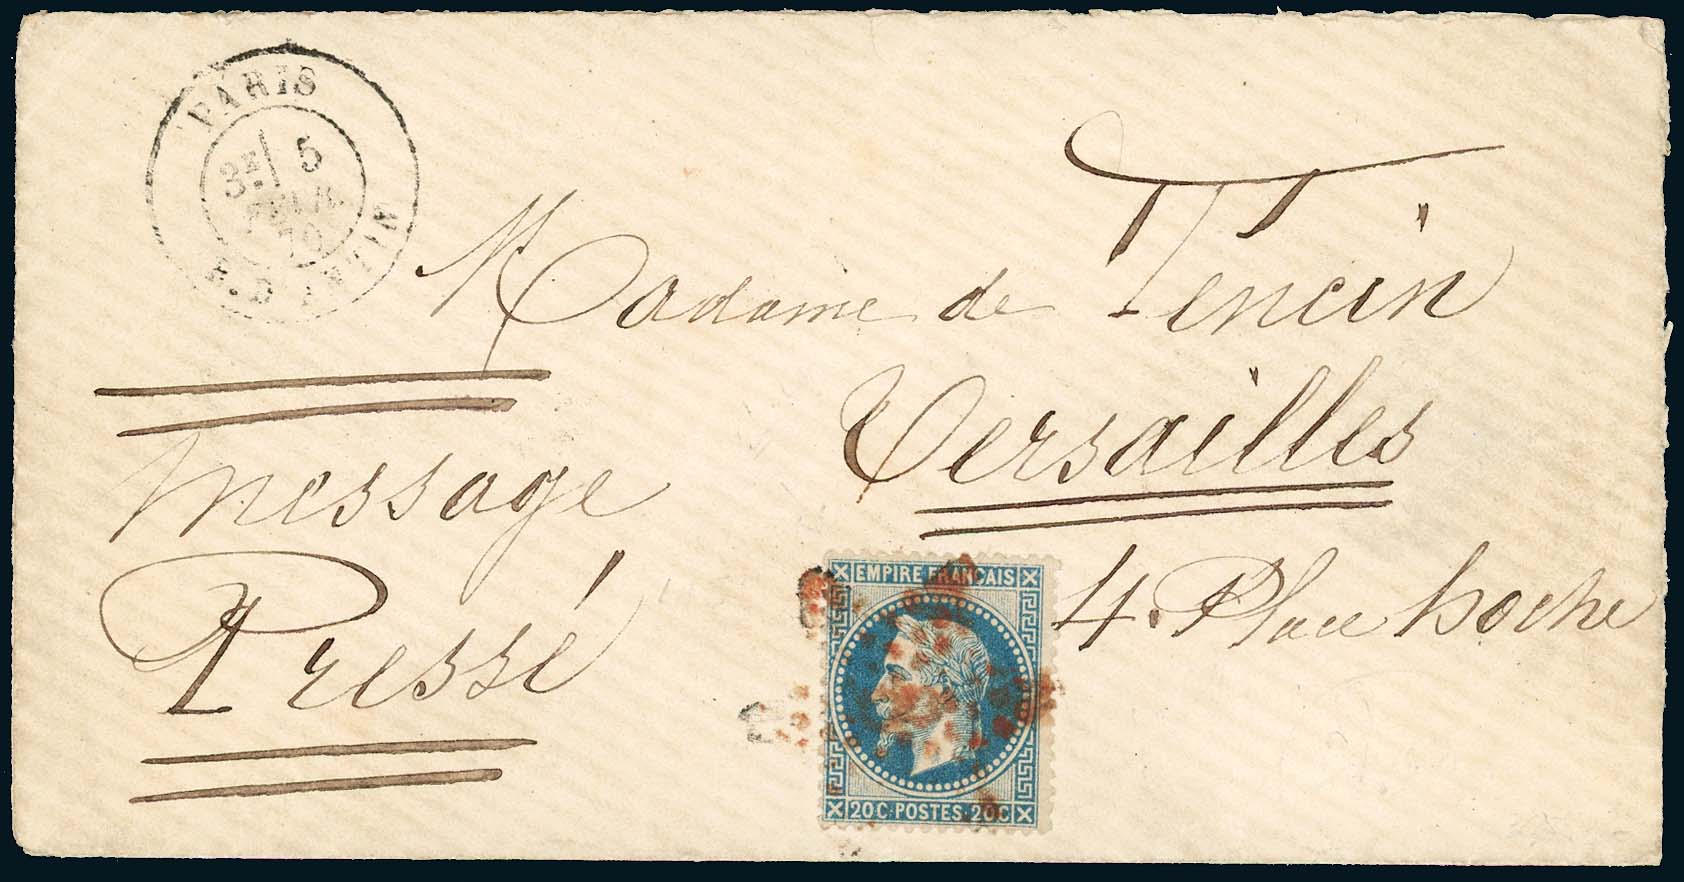 PARIS
3E 5
FEVR.
70
R. D'ANTIN
Madame de Tencin
Versailles
4. Place hoche
Message
Pressé
EMPIRE FRANCAIS
20C·POSTES·20C